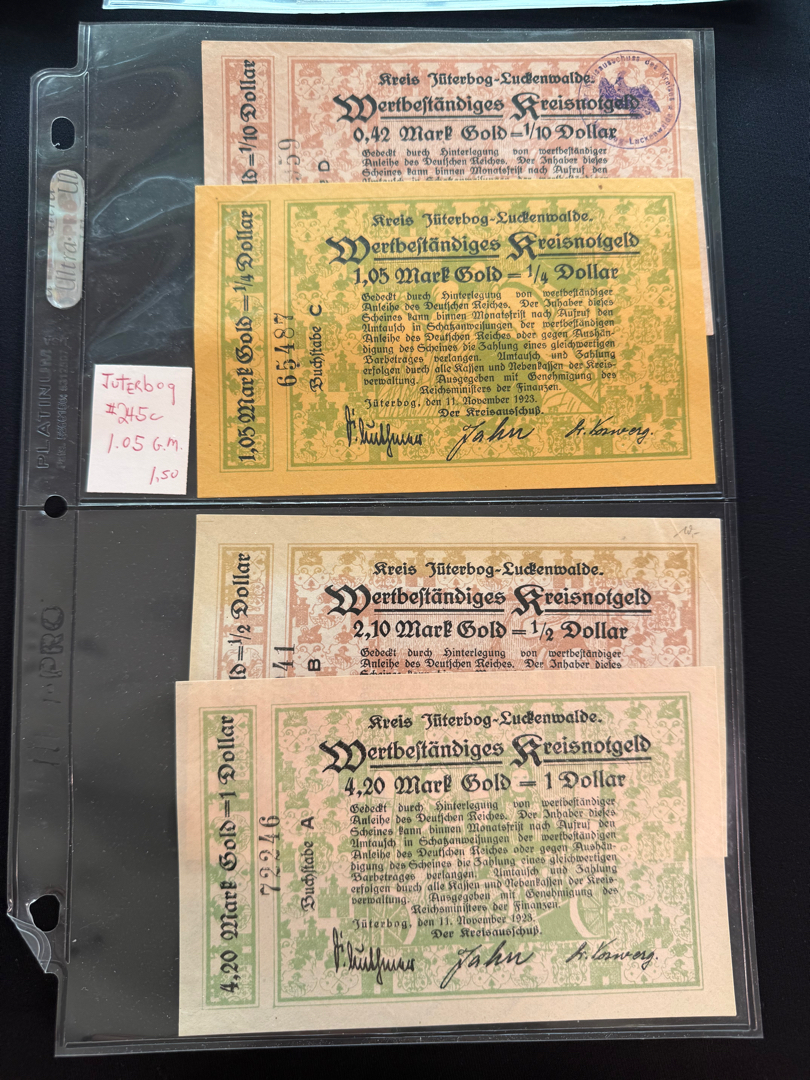 Kreis Jüterbog-Luckenwalde.
Wertbeständiges Kreisnotgeld
0,42 Mark Gold = 1/10 Dollar
Gedeckt durch Hinterlegung von wertbeständiger
Anleihe des Deutschen Reiches. Der Inhaber dieses
Scheines kann binnen Monatsfrist nach Aufruf den
ld=1/10 Dollar
59
D
Kreis Jüterbog-Luckenwalde.
Wertbeständiges Kreisnotgeld
1,05 Mark Gold = 1/4 Dollar
Gedeckt durch Hinterlegung von wertbeständiger
Anleihe des Deutschen Reiches. Der Inhaber dieses
Scheines kann binnen Monatsfrist nach Aufruf den
Umtausch in Schatzanweisungen der wertbeständigen
Anleihe des Deutschen Reiches oder gegen Aushän-
digung des Scheines die Zahlung eines gleichwertigen
Barbetrages verlangen. Umtausch und Zahlung
erfolgen durch alle Kassen und Nebenkassen der Kreis-
verwaltung. Ausgegeben mit Genehmigung des
Reichsministers der Finanzen.
Jüterbog, den 11. November 1923.
Der Kreisausschuß.
Jahn
1,05 Mark Gold = 1/4 Dollar
65487
Buchstabe C
Ultra-PRO
PLATINUM
JUTERbog
#245c
1.05 G.M.
1,50
Kreis Jüterbog-Luckenwalde.
Wertbeständiges Kreisnotgeld
2,10 Mark Gold = 1/2 Dollar
Gedeckt durch Hinterlegung von wertbeständiger
Anleihe des Deutschen Reiches. Der Inhaber dieses
ld=1/2 Dollar
41
B
Kreis Jüterbog-Luckenwalde.
Wertbeständiges Kreisnotgeld
4,20 Mark Gold = 1 Dollar
Gedeckt durch Hinterlegung von wertbeständiger
Anleihe des Deutschen Reiches. Der Inhaber dieses
Scheines kann binnen Monatsfrist nach Aufruf den
Umtausch in Schatzanweisungen der wertbeständigen
Anleihe des Deutschen Reiches oder gegen Aushän-
digung des Scheines die Zahlung eines gleichwertigen
Barbetrages verlangen. Umtausch und Zahlung
erfolgen durch alle Kassen und Nebenkassen der Kreis-
verwaltung. Ausgegeben mit Genehmigung des
Reichsministers der Finanzen.
Jüterbog, den 11. November 1923.
Der Kreisausschuß.
Jahn
4,20 Mark Gold = 1 Dollar
72246
Buchstabe A